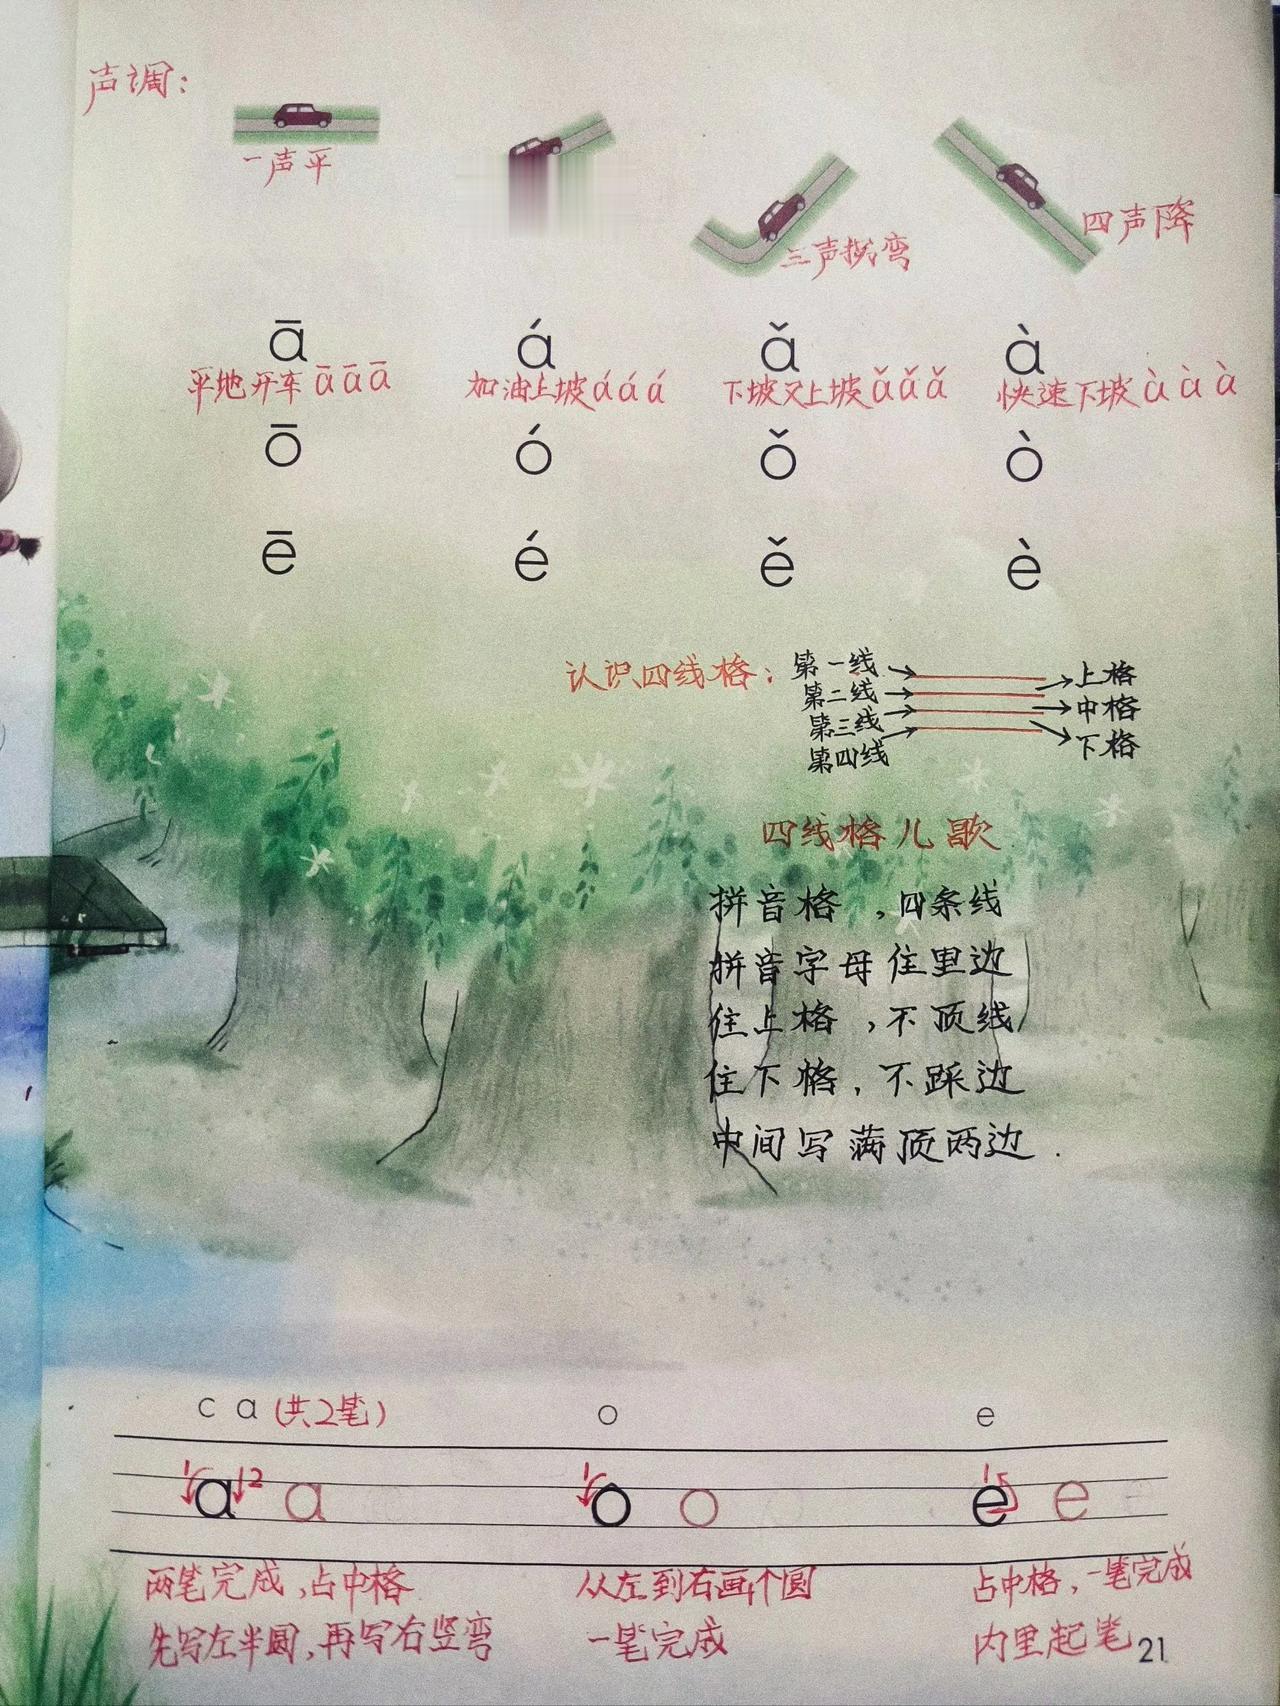 声调：
一声平
三声拐弯
四声降
ā á ǎ à
平地开车āāā 加油上坡ááá 下坡又上坡ǎǎǎ 快速下坡ààà
ō ó ǒ ò
ē é ě è
认识四线格：
第一线 上格
第二线 中格
第三线 下格
第四线
四线格儿歌
拼音格，四条线
拼音字母住里边
住上格，不顶线
住下格，不踩边
中间写满顶两边.
c a (共2笔) o e
1 a 2 a 1 o o 1 e e
两笔完成，占中格 从左到右画个圆 占中格，一笔完成
先写左半圆，再写右竖弯 一笔完成 内里起笔
21